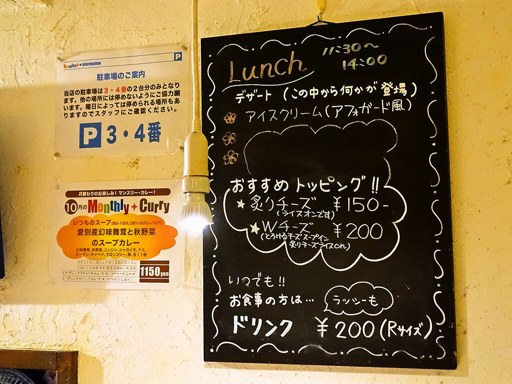 Information
P
駐車場のご案内
当店の駐車場は3・4番の2台分のみとなり
ます。他の場所には停めないようにご協力願
います。曜日によっては停められる場所もあ
りますのでスタッフにご確認ください。
P 3・4番
月替わりのお楽しみ! マンスリー・カレー!
10月の Monthly Curry
いつものスープ
愛別産幻味舞茸と秋野菜
のスープカレー
1150yen
Lunch 11:30〜
14:00
デザート (この中から何かが登場)
アイスクリーム(アフォガード風)
おすすめ トッピング!!
★炙りチーズ ¥150-
(ライスオンです)
★Wチーズ ¥200
(とろけるチーズスープイン
炙りチーズライスon)
いつでも!!
お食事の方は… ラッシーも
ドリンク ¥200(Rサイズ)